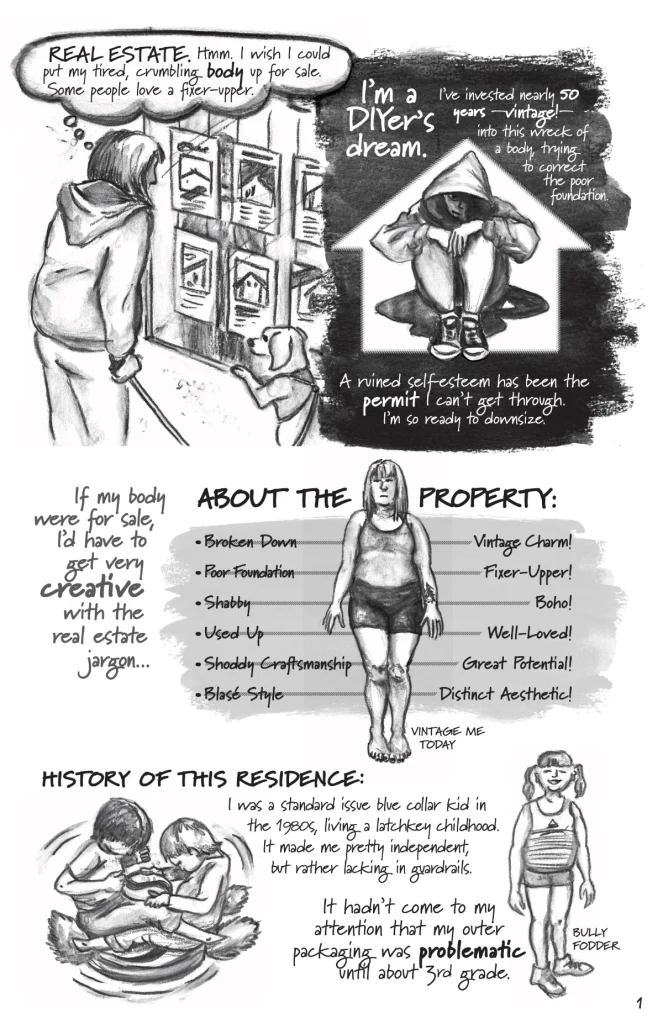 REAL ESTATE. Hmm. I wish I could
put my tired, crumbling body up for sale.
Some people love a fixer-upper.
I'm a
DIYer's
dream.
I've invested nearly 50
years —vintage!—
into this wreck of
a body, trying
to correct
the poor
foundation.
A ruined self-esteem has been the
permit I can't get through.
I'm so ready to downsize.
If my body
were for sale,
I'd have to
get very
creative
with the
real estate
jargon...
ABOUT THE PROPERTY:
• Broken Down Vintage Charm!
• Poor Foundation Fixer-Upper!
• Shabby Boho!
• Used Up Well-Loved!
• Shoddy Craftsmanship Great Potential!
• Blasé Style Distinct Aesthetic!
VINTAGE ME
TODAY
HISTORY OF THIS RESIDENCE:
I was a standard issue blue collar kid in
the 1980s, living a latchkey childhood.
It made me pretty independent,
but rather lacking in guardrails.
It hadn't come to my
attention that my outer
packaging was problematic
until about 3rd grade.
BULLY
FODDER
1